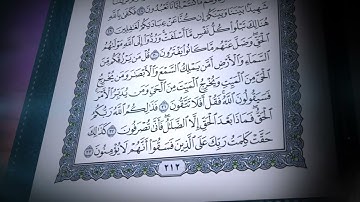 شَهِيدًۢا بَيْنَنَا وَبَيْنَكُمْ إِن كُنَّا عَنْ عِبَادَتِكُمْ لَغَٰفِلِينَ ٢٩
هُنَالِكَ تَبْلُوا۟ كُلُّ نَفْسٍ مَّآ أَسْلَفَتْ وَرُدُّوٓا۟ إِلَى ٱللَّهِ مَوْلَىٰهُمُ
ٱلْحَقِّ وَضَلَّ عَنْهُم مَّا كَانُوا۟ يَفْتَرُونَ ٣٠ قُلْ مَن يَرْزُقُكُم مِّنَ
ٱلسَّمَآءِ وَٱلْأَرْضِ أَمَّن يَمْلِكُ ٱلسَّمْعَ وَٱلْأَبْصَٰرَ وَمَن يُخْرِجُ
ٱلْحَىَّ مِنَ ٱلْمَيِّتِ وَيُخْرِجُ ٱلْمَيِّتَ مِنَ ٱلْحَىِّ وَمَن يُدَبِّرُ ٱلْأَمْرَ
فَسَيَقُولُونَ ٱللَّهُ فَقُلْ أَفَلَا تَتَّقُونَ ٣١ فَذَٰلِكُمُ ٱللَّهُ رَبُّكُمُ
ٱلْحَقُّ فَمَاذَا بَعْدَ ٱلْحَقِّ إِلَّا ٱلضَّلَٰلُ فَأَنَّىٰ تُصْرَفُونَ ٣٢ كَذَٰلِكَ
حَقَّتْ كَلِمَتُ رَبِّكَ عَلَى ٱلَّذِينَ فَسَقُوٓا۟ أَنَّهُمْ لَا يُؤْمِنُونَ ٣٣
٢١٢